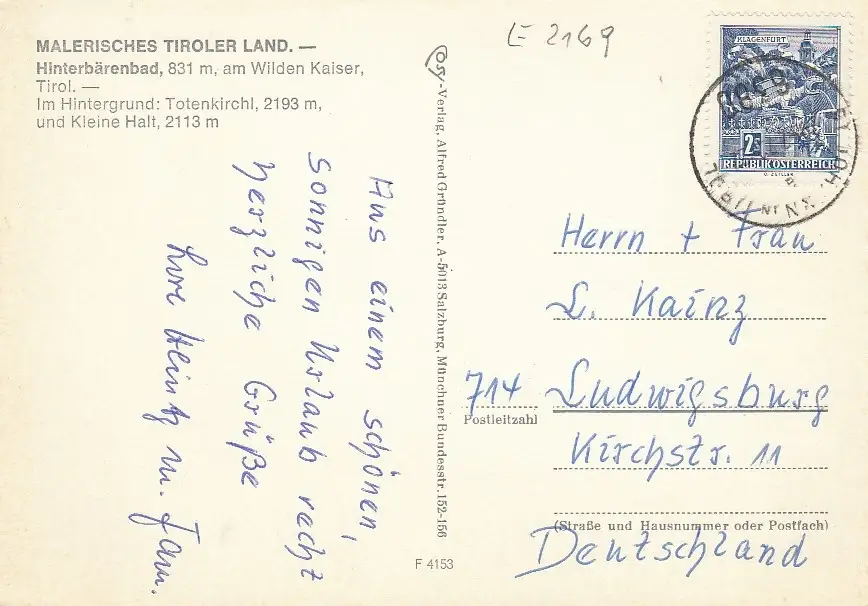 MALERISCHES TIROLER LAND. —
Hinterbärenbad, 831 m, am Wilden Kaiser,
Tirol. —
Im Hintergrund: Totenkirchl, 2193 m,
und Kleine Halt, 2113 m
E 2169
Aus einem schönen,
sonnigen Urlaub recht
herzliche Grüße
Eure Heinz u. Fam.
Cosy-Verlag, Alfred Gründler, A-5013 Salzburg, Münchner Bundesstr. 152-156
F 4153
KLAGENFURT
2S
REPUBLIK ÖSTERREICH
Herrn + Frau
L. Kainz
714 Ludwigsburg
Postleitzahl
Kirchstr. 11
(Straße und Hausnummer oder Postfach)
Deutschland